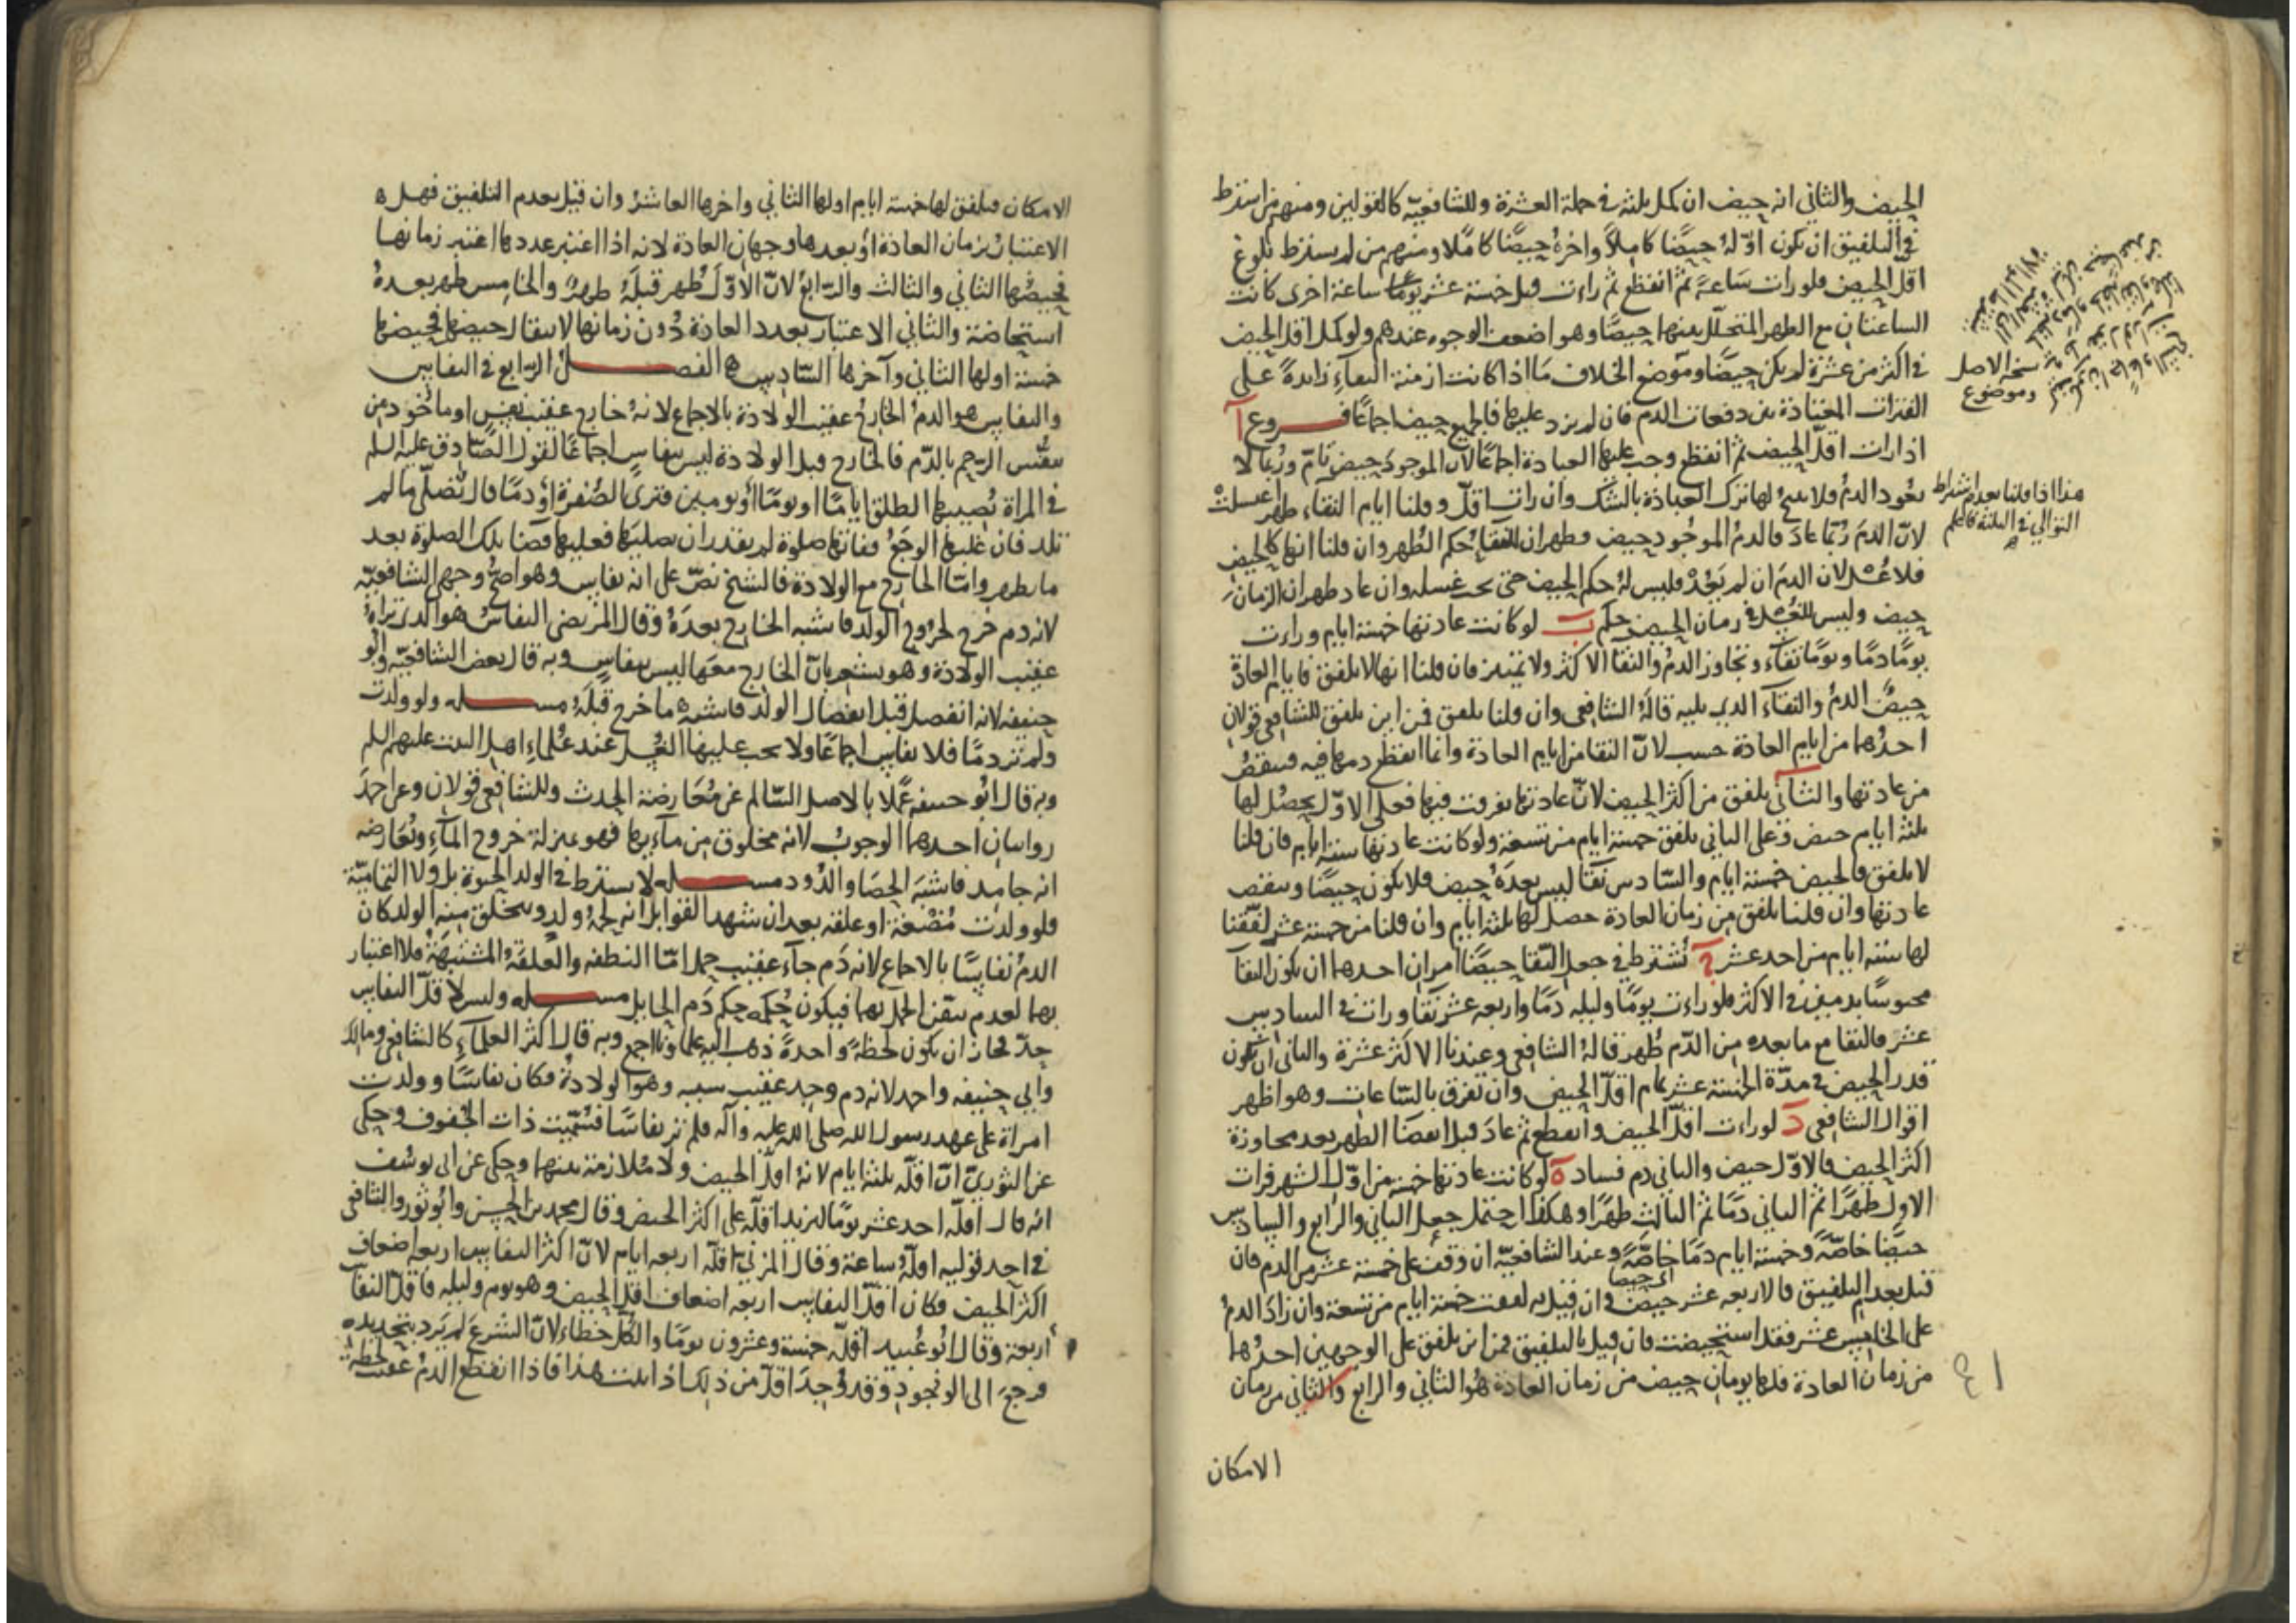 الحيض والثاني انه حيض ان كمل ثلثة في جملة العشرة وللشافعية كالقولين ومنهم من اشترط
في التلفيق ان يكون اوله حيضا كاملا واخره حيضا كاملا ومنهم من لم يشترط بلوغ
اقل الحيض فلو رات ساعة ثم انقطع ثم رات قبل خمسة عشر يوما ساعة اخرى كانت
الساعتان مع الطهر المتخلل بينهما حيضا وهو اضعف الوجوه عندهم ولو كمل اقل الحيض
في اكثر من عشرة لم يكن حيضا وموضع الخلاف ما اذا كانت ازمنة النقاء زايدة على
الفترات المعتادة بين دفعات الدم فان لم يزد عليها فالجميع حيض اجماعا فروع آ
اذا رات اقل الحيض ثم انقطع وجب عليها العبادة اجماعا لان الموجود حيض تام وربما لا
يعود الدم فلا يبح لها ترك العبادة بالشك وان رات اقل وقلنا ايام النقاء طهر اغتسلت
لان الدم ربما عاد فالدم الموجود حيض وطهران للنقاء حكم الطهر وان قلنا انها كالحيض
فلا غسل لان الدم ان لم يعد فليس له حكم الحيض حتى يجب غسله وان عاد طهر ان الزمان
حيض وليس للغسل في زمان الحيض حكم ب لو كانت عادتها خمسة ايام ورات
يوما دما ويوما نقاء وتجاوز الدم والنقا الاكثر ولا تمييز فان قلنا انها لا تلفق فايام العادة
حيض الدم والنقاء الذي يليه قاله الشافعي وان قلنا تلفق فمن اين تلفق للشافعي قولان
احدهما من ايام العادة حسب لان النقا من ايام العادة وانما انقطع دمها فيه فينقص
من عادتها والثاني تلفق من اكثر الحيض لان عادتها تفرقت فيها فعلى الاول يحصل لها
ثلثة ايام حيض وعلى الثاني تلفق خمسة ايام من تسعة ولو كانت عادتها ستة ايام فان قلنا
لا تلفق فالحيض خمسة ايام والسادس نقا ليس بعده حيض فلا يكون حيضا وينقص
عادتها وان قلنا تلفق من زمان العادة حصل لها ثلثة ايام وان قلنا من خمسة عشر لفقنا
لها ستة ايام من احد عشر ج نشترط في جعل النقا حيضا امران احدهما ان يكون النقا
محبوسا بدمين في الاكثر فلو رات يوما وليله دما واربعة عشر نقا ورات في السادس
عشر فالنقا مع ما بعده من الدم طهر قاله الشافعي وعندنا الاكثر عشرة والثاني ان يكون
قدر الحيض في مدة الخمسة عشر تمام اقل الحيض وان تفرق بالساعات وهو اظهر
اقوال الشافعي د لو رات اقل الحيض وانقطع ثم عاد قبل انقضا الطهر بعد مجاوزة
اكثر الحيض فالاول حيض والثاني دم فساد ه لو كانت عادتها خمسة من اول الشهر فرات
الاول طهرا ثم الثاني دما ثم الثالث طهرا وهكذا احتمل جعل الثاني والرابع والسادس
حيضا خاصة وخمسة ايام دما خاصة وعند الشافعية ان وقف على خمسة عشر من الدم فان
قيل بعدم التلفيق فالاربعة عشر حيض وان قيل به لفقت خمسة ايام من تسعة وان زاد الدم
اي حيضا
على الخامس عشر فقد استحيضت فان قيل بالتلفيق فمن اين تلفق على الوجهين احدهما
من زمان العادة فلها يومان حيض من زمان العادة هو الثاني والرابع والثاني من زمان
الامكان
نسخة الاصل
وموضوع
هذا اذا قلنا بعدم اشتراط
التوالي في الثلثة فاعلم
الامكان فتلفق لها خمسة ايام اولها الثاني واخرها العاشر وان قيل بعدم التلفيق فهل
الاعتبار بزمان العادة او بعددها وجهان العادة لانه اذا اعتبر عددها اعتبر زمانها
فحيضها الثاني والثالث والرابع لان الاول طهر قبله طهر والخامس طهر بعده
استحاضة والثاني الاعتبار بعدد العادة دون زمانها لانتقال حيضها فحيضها
خمسة اولها الثاني وآخرها السادس ه الفصل الرابع في النفاس
والنفاس هو الدم الخارج عقيب الولادة بالاجماع لانه خارج عقيب نفس او ماخوذ من
تنفس الرحم بالدم فالخارج قبل الولادة ليس بنفاس اجماعا لقول الصادق عليه السلم
في المراة يصيبها الطلق اياما او يوما او يومين فترى الصفرة او دما قال تصلي ما لم
تلد فان غلبها الوجع ففاتها صلوة لم يقدر ان يصليها فعليها قضا تلك الصلوة بعد
ما يطهر واما الخارج مع الولادة فالشيخ نص على انه نفاس وهو اصح وجهي الشافعية
لانه دم خرج لخروج الولد فاشبه الخارج بعده وقال المرتضى النفاس هو الذي تراه
عقيب الولادة وهو يشعر بان الخارج معها ليس بنفاس وبه قال بعض الشافعية وابو
حنيفه لانه انفصل قبل انفصال الولد فاشبه ما خرج قبله مسله ولو ولدت
ولم تر دما فلا نفاس اجماعا ولا يجب عليها الغسل عند علماء اهل البيت عليهم السلم
وبه قال ابو حنيفه عملا بالاصل السالم عن معارضة الحدث وللشافعي قولان وعن احمد
روايتان احدهما الوجوب لانه مخلوق من مآءيهما فهو بمنزلة خروج المآء وتعارضه
انه جامد فاشبه الحصا والدود مسله لا يشترط في الولد الحيوة بل ولا التمامية
فلو ولدت مضغة او علقة بعد ان شهد القوابل انه لحمة ولد ويتخلق منه الولد كان
الدم نفاسا بالاجماع لانه دم جآء عقيب حمل اما النطفة والعلقة المشتبهة فلا اعتبار
بهما لعدم تيقن الحمل بهما فيكون حكمه حكم دم الحايل مسله وليس لاقل النفاس
حد فجاز ان يكون لحظة واحدة ذهب اليه علماؤنا اجمع وبه قال اكثر العلمآء كالشافعي ومالك
وابي حنيفه واحمد لانه دم وجد عقيب سببه وهو الولادة فكان نفاسا وولدت
امراة على عهد رسول الله صلى الله عليه وآله فلم تر نفاسا فسميت ذات الجفوف وحكى
عن الثوري ان اقله ثلثة ايام لانه اقل الحيض ولا ملازمة بينهما وحكى عن ابي يوسف
انه قال اقله احد عشر يوما ليزيد اقله على اكثر الحيض وقال محمد بن الحسن وابو ثور والشافعي
في احد قوليه اقله ساعة وقال المزني اقله اربعه ايام لان اكثر النفاس اربعه اضعاف
اكثر الحيض فكان اقل النفاس اربعه اضعاف اقل الحيض وهو يوم وليله فاقل النفاس
اربعة وقال ابو عبيد اقله خمسة وعشرون يوما والكل خطاء لان الشرع لم يرد بتحديده
فرجع الى الوجود وقد وجد اقل من ذلك اذا ثبت هذا فاذا انقطع الدم عقيب لحظة